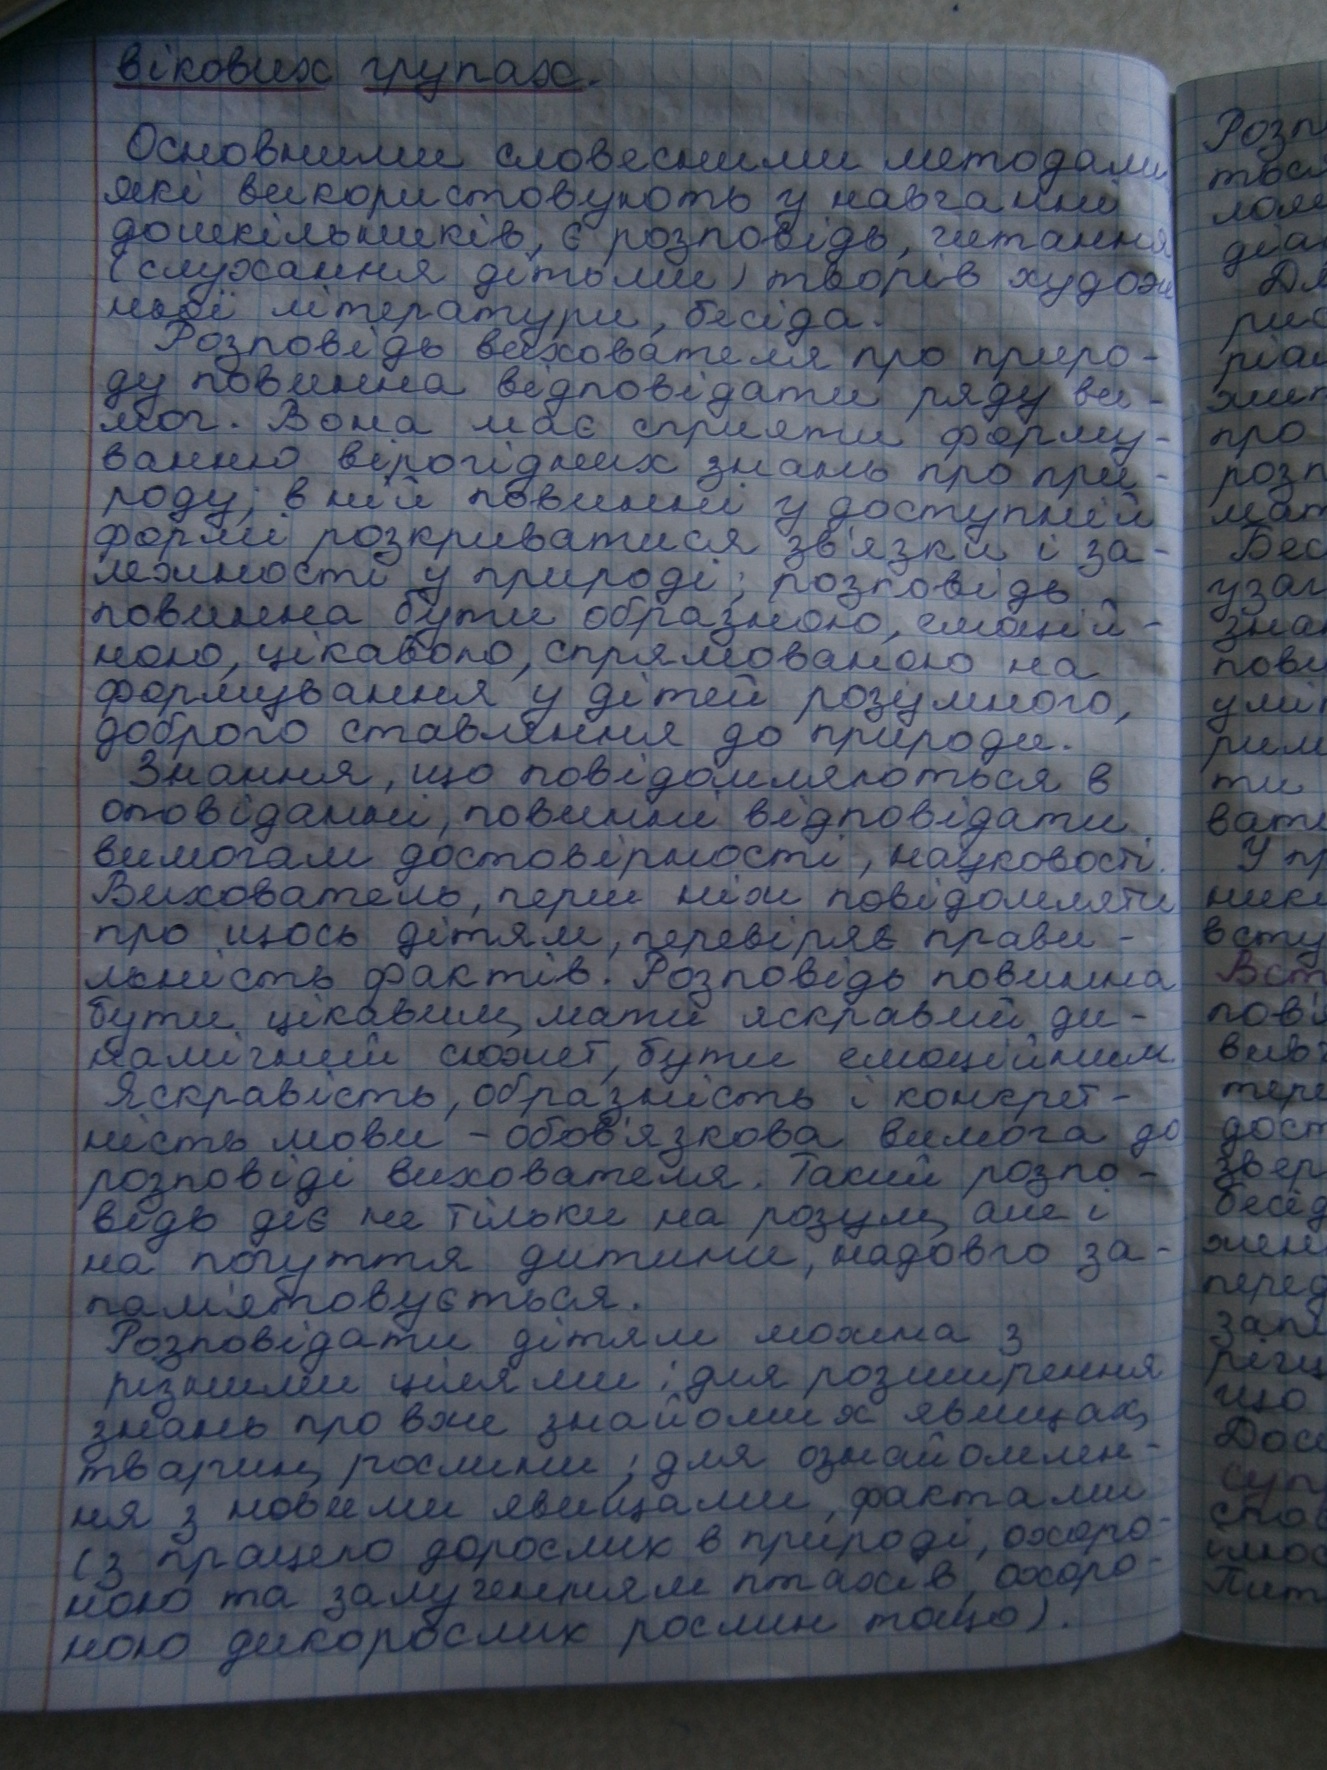 вікових групах.
Основними словесними методами
які використовують у навчанні
дошкільників, є розповідь, читання
(слухання дітьми) творів худож
ньої літератури, бесіда.
Розповідь вихователя про приро-
ду повинна відповідати ряду ви-
мог. Вона має сприяти форму-
ванню вірогідних знань про при-
роду; в ній повинні у доступній
формі розкриватися зв'язки і за-
лежності у природі; розповідь
повинна бути образною, емоцій-
ною, цікавою, спрямованою на
формування у дітей розумного,
доброго ставлення до природи.
Знання, що повідомляються в
оповіданні, повинні відповідати
вимогам достовірності, науковості.
Вихователь, перш ніж повідомляти
про щось дітям, перевіряє прави-
льність фактів. Розповідь повинна
бути цікавим, мати яскравий ди-
намічний сюжет, бути емоційним
Яскравість, образність і конкрет-
ність мови - обов'язкова вимога до
розповіді вихователя. Такий розпо-
відь діє не тільки на розум, але і
на почуття дитини, надовго за-
пам'ятовується.
Розповідати дітям можна з
різними цілями: для розширення
знань про вже знайомих явищах,
тварин, рослини; для ознайомлен-
ня з новими явищами, фактами
(з працею дорослих в природі, охоро-
ною та залученням птахів, охоро-
ною дикорослих рослин тощо).
Розп
ться
діа
про
розп
мат
Бес
узаг
знан
пови
умін
рим
ти
вати
У пр
ники
всту
Вст
пов'я
вивч
тере
дост
звер
бесід
жен
перед
запи
що
Дос
суп
Пит